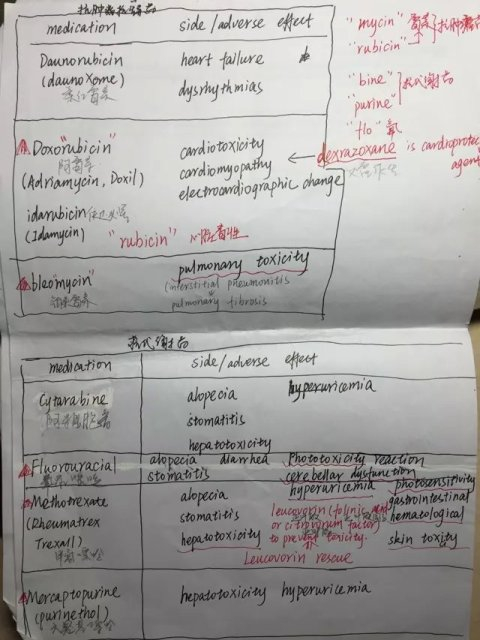 抗肿瘤抗生素
medication side/adverse effect
Daunorubicin heart failure
(daunoxome) dysrhythmias
柔红霉素
"mycin" 霉素
"rubicin" 抗肿瘤
"bine"
"purine" 抗代谢药
"flo" 氟
Doxo"rubicin" cardiotoxicity
阿霉素 cardiomyopathy
(Adriamycin, Doxil) electrocardiographic change
dexrazoxane is cardioprotec
agent
idarubicin
(Idamycin) "rubicin" 心脏毒性
bleo"mycin" pulmonary toxicity
(interstitial pneumonitis
pulmonary fibrosis
抗代谢药
medication side/adverse effect
Cytarabine alopecia hyperuricemia
阿糖胞苷 stomatitis
hepatotoxicity
Fluorouracial alopecia diarrhea Phototoxicity reaction
stomatitis cerebellar dysfunction
Methotrexate alopecia hyperuricemia photosensitivity
(Rheumatrex stomatitis leucovorin (folinic acid gastrointestinal
Trexall) or citrovorum factor) hematological
hepatotoxicity to prevent toxicity. skin toxity
甲氨蝶呤 Leucovorin rescue
Mercaptopurine hepatotoxicity hyperuricemia
(purinethol)